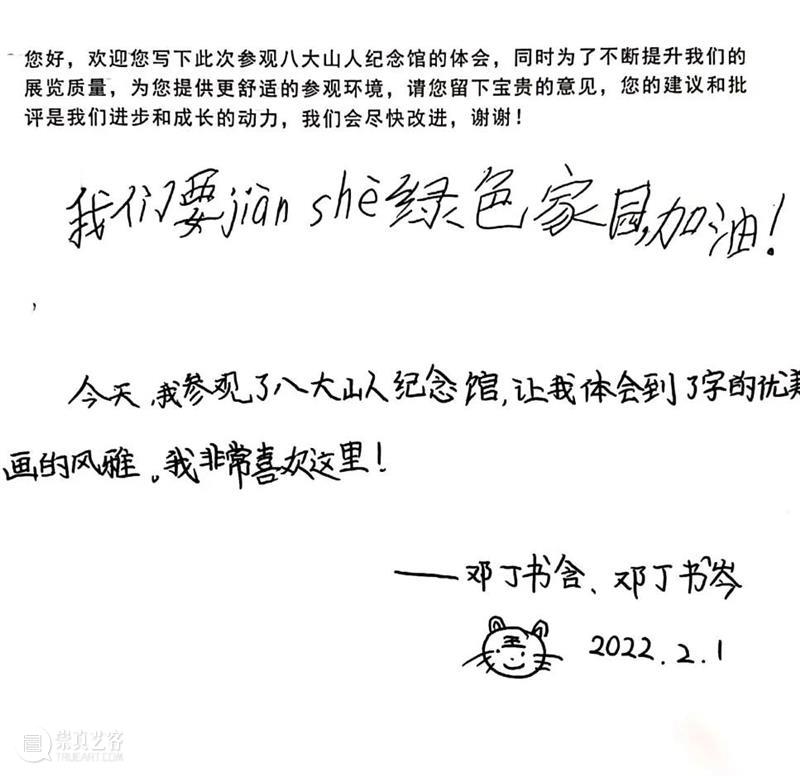 您好，欢迎您写下此次参观八大山人纪念馆的体会，同时为了不断提升我们的
展览质量，为您提供更舒适的参观环境，请您留下宝贵的意见，您的建议和批
评是我们进步和成长的动力，我们会尽快改进，谢谢！
我们要jiàn shè绿色家园,加油！
，
今天,我参观了八大山人纪念馆,让我体会到了字的优美
画的风雅。我非常喜欢这里！
——邓丁书含、邓丁书岑
王
2022.2.1
崇真艺客
TRUEART.COM